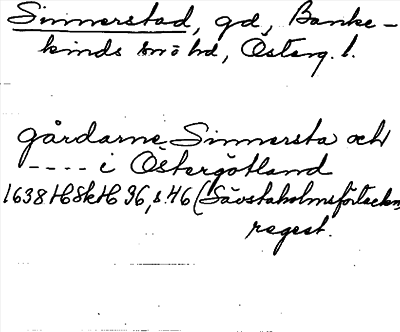 Sinnerstad, gd, Banke-
kinds snö hd, Österg. l.
gårdarne Sinnersta och
---- i Östergötland
1638 HSkH 36, s. 46 (Sävstaholmsförteckn.
regest.